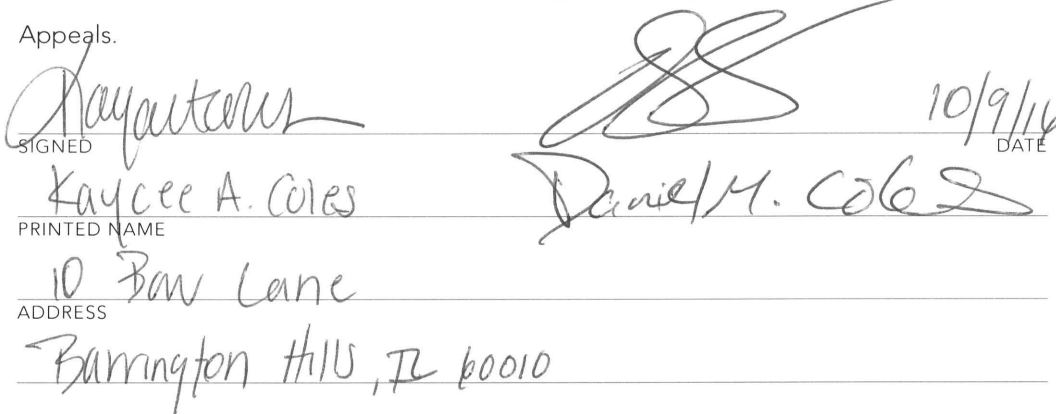 Appeals.
10/9/16
SIGNED DATE
Kaycee A. Coles Daniel M. Coles
PRINTED NAME
10 Bow Lane
ADDRESS
Barrington Hills, IL 60010